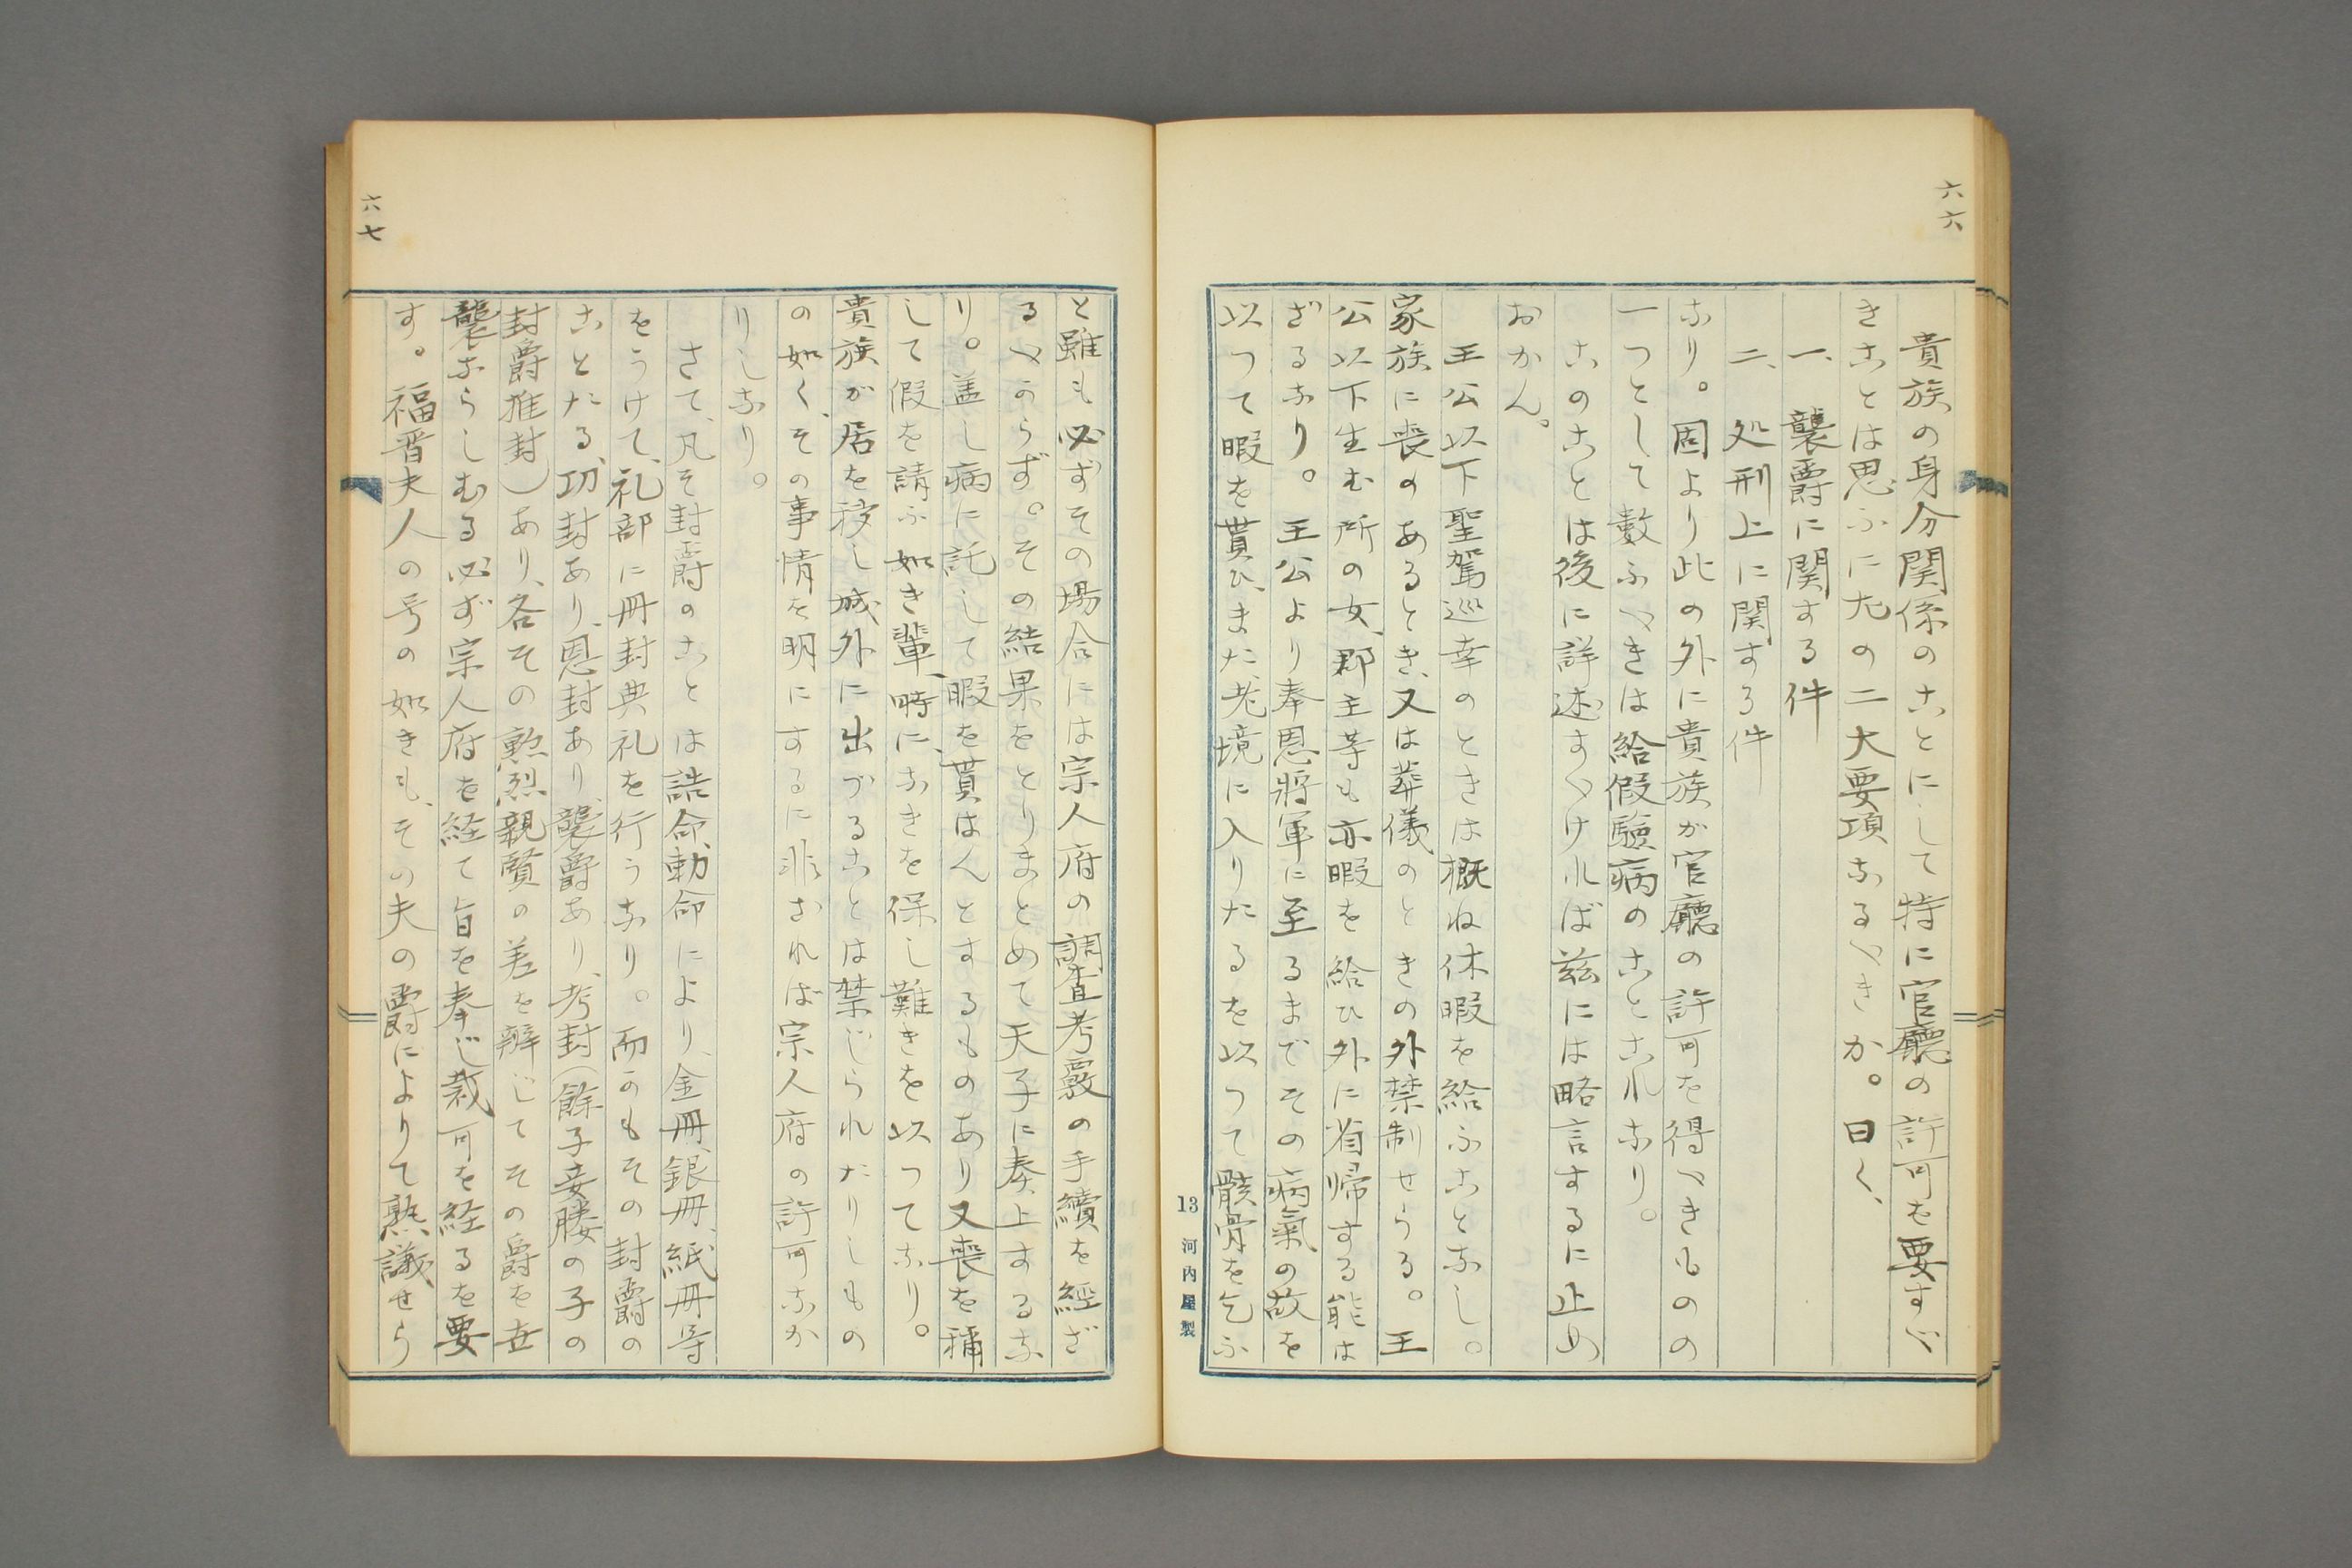 六六
貴族の身分関係のことにして特に官廳の許可を要すべ
きことは思ふに左の二大要項なるべきか。曰く、
一、襲爵に関する件
二、処刑上に関する件
なり。固より此の外に貴族が官廳の許可を得べきものの
一つとして数ふべきは給假驗病のことこれなり。
このことは後に詳述すべければ茲には略言するに止め
おかん。
王公以下聖駕巡幸のときは概ね休暇を給ふことなし。
家族に喪のあるとき、又は葬儀のときの外禁制せらる。王
公以下生む所の女、郡主等も亦暇を給ひ外に省帰する能は
ざるなり。王公より奉恩将軍に至るまでその病氣の故を
以つて暇を貰ひ、また老境に入りたるを以つて骸骨を乞ふ
13 河内屋製
六七
と雖も必ずその場合には宗人府の調査考覈の手續を經ざ
るべからず。その結果をとりまとめて天子に奏上するな
り。蓋し病に託して暇を貰はんとするものあり又喪を稱
して假を請ふ如き輩、時に、なきを保し難きを以つてなり。
貴族が居を移し城外に出づることは禁じられたりしもの
の如く、その事情を明にするに非ざれば宗人府の許可なか
りしなり。
さて、凡そ封爵のことは誥命、勅命により、金冊、銀冊、紙冊等
をうけて、礼部に冊封典礼を行うなり。而かもその封爵の
ことたる、功封あり、恩封あり、襲爵あり、考封（餘子妾媵の子の
封爵推封）あり、各その勲烈親賢の差を辨じてその爵を世
襲ならしむる必ず宗人府を経て旨を奉じ裁可を経るを要
す。福晋夫人の号の如きも、その夫の爵によりて熟議せら